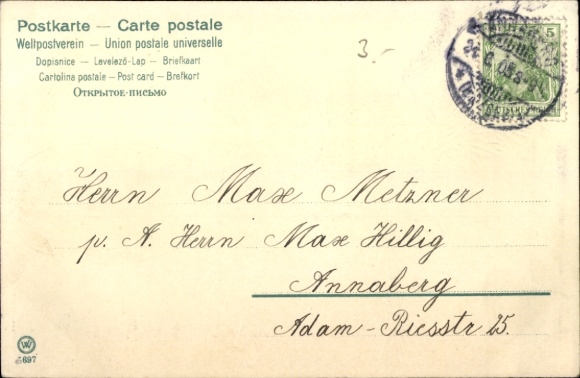 Postkarte — Carte postale
Weltpostverein — Union postale universelle
Dopisnice — Levelező-Lap — Briefkaart
Cartolina postale — Post card — Brefkort
Открытое-письмо
3.-
5
Herrn Max Metzner
p. A. Herrn Max Hillig
Annaberg
Adam-Riesstr 25.
W
697